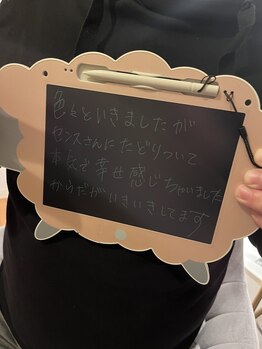 色々といきましたが
センスさんにたどりついて
本当に幸せ感じちゃいました
からだがいきいきしてます